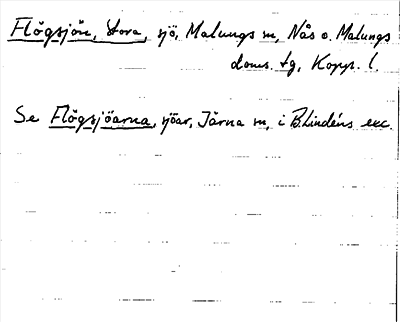 Flögsjön, Stora, sjö, Malungs sn, Nås o. Malungs
doms. tg, Kopp. l.
Se Flögsjöarna, sjöar, Järna sn, i B. Lindéns exc.